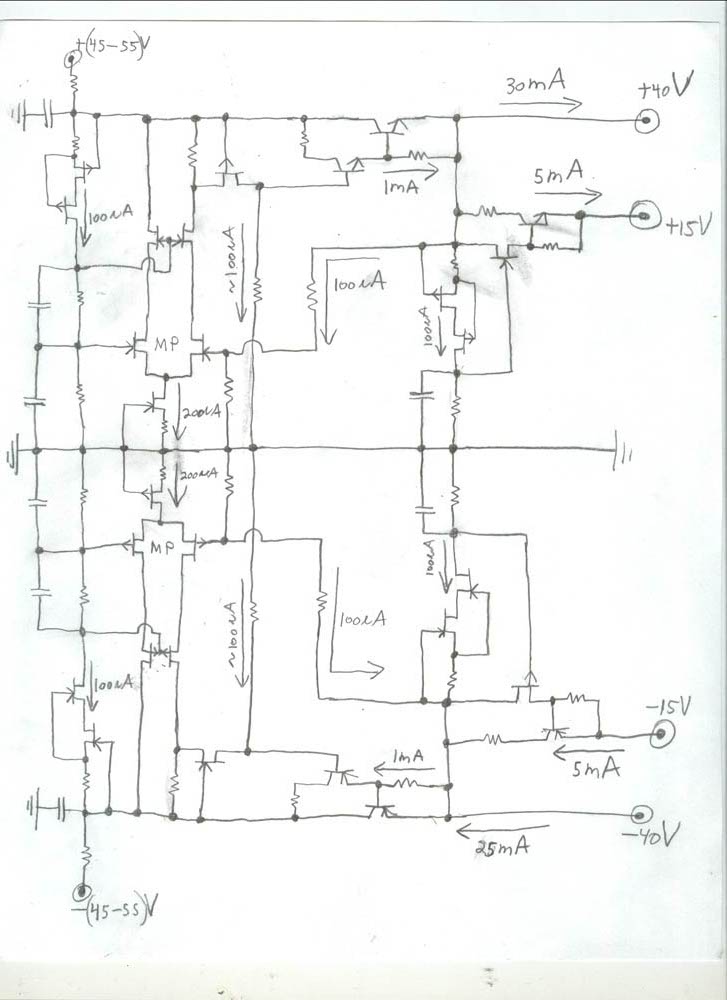 +(45-55)V
30mA
+40V
1mA
5mA
+15V
100uA
~100uA
100uA
100uA
MP
200uA
200uA
MP
100uA
~100uA
100uA
100uA
-15V
1mA
5mA
25mA
-40V
-(45-55)V